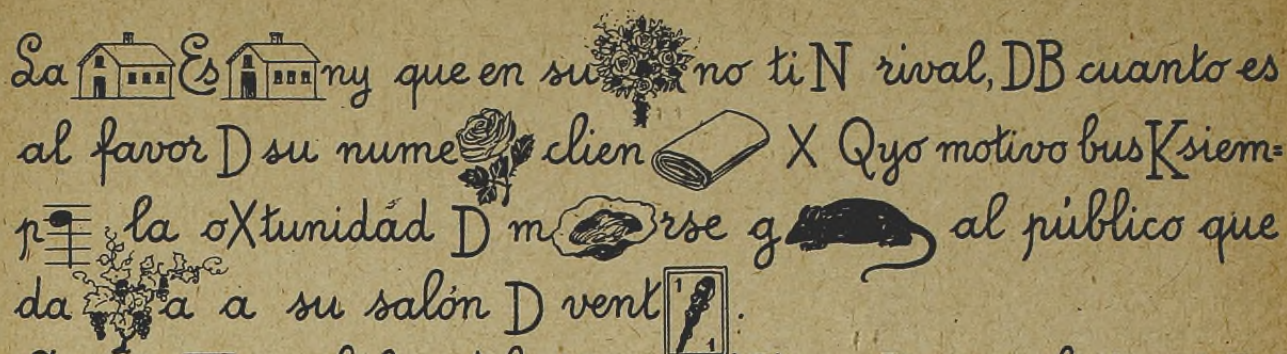 La Es ny que en su no ti N rival, DB cuanto es
al favor D su nume clien X Qyo motivo bus K siem=
p la oXtunidad D m rse g al público que
da a a su salón D vent 1 1 .